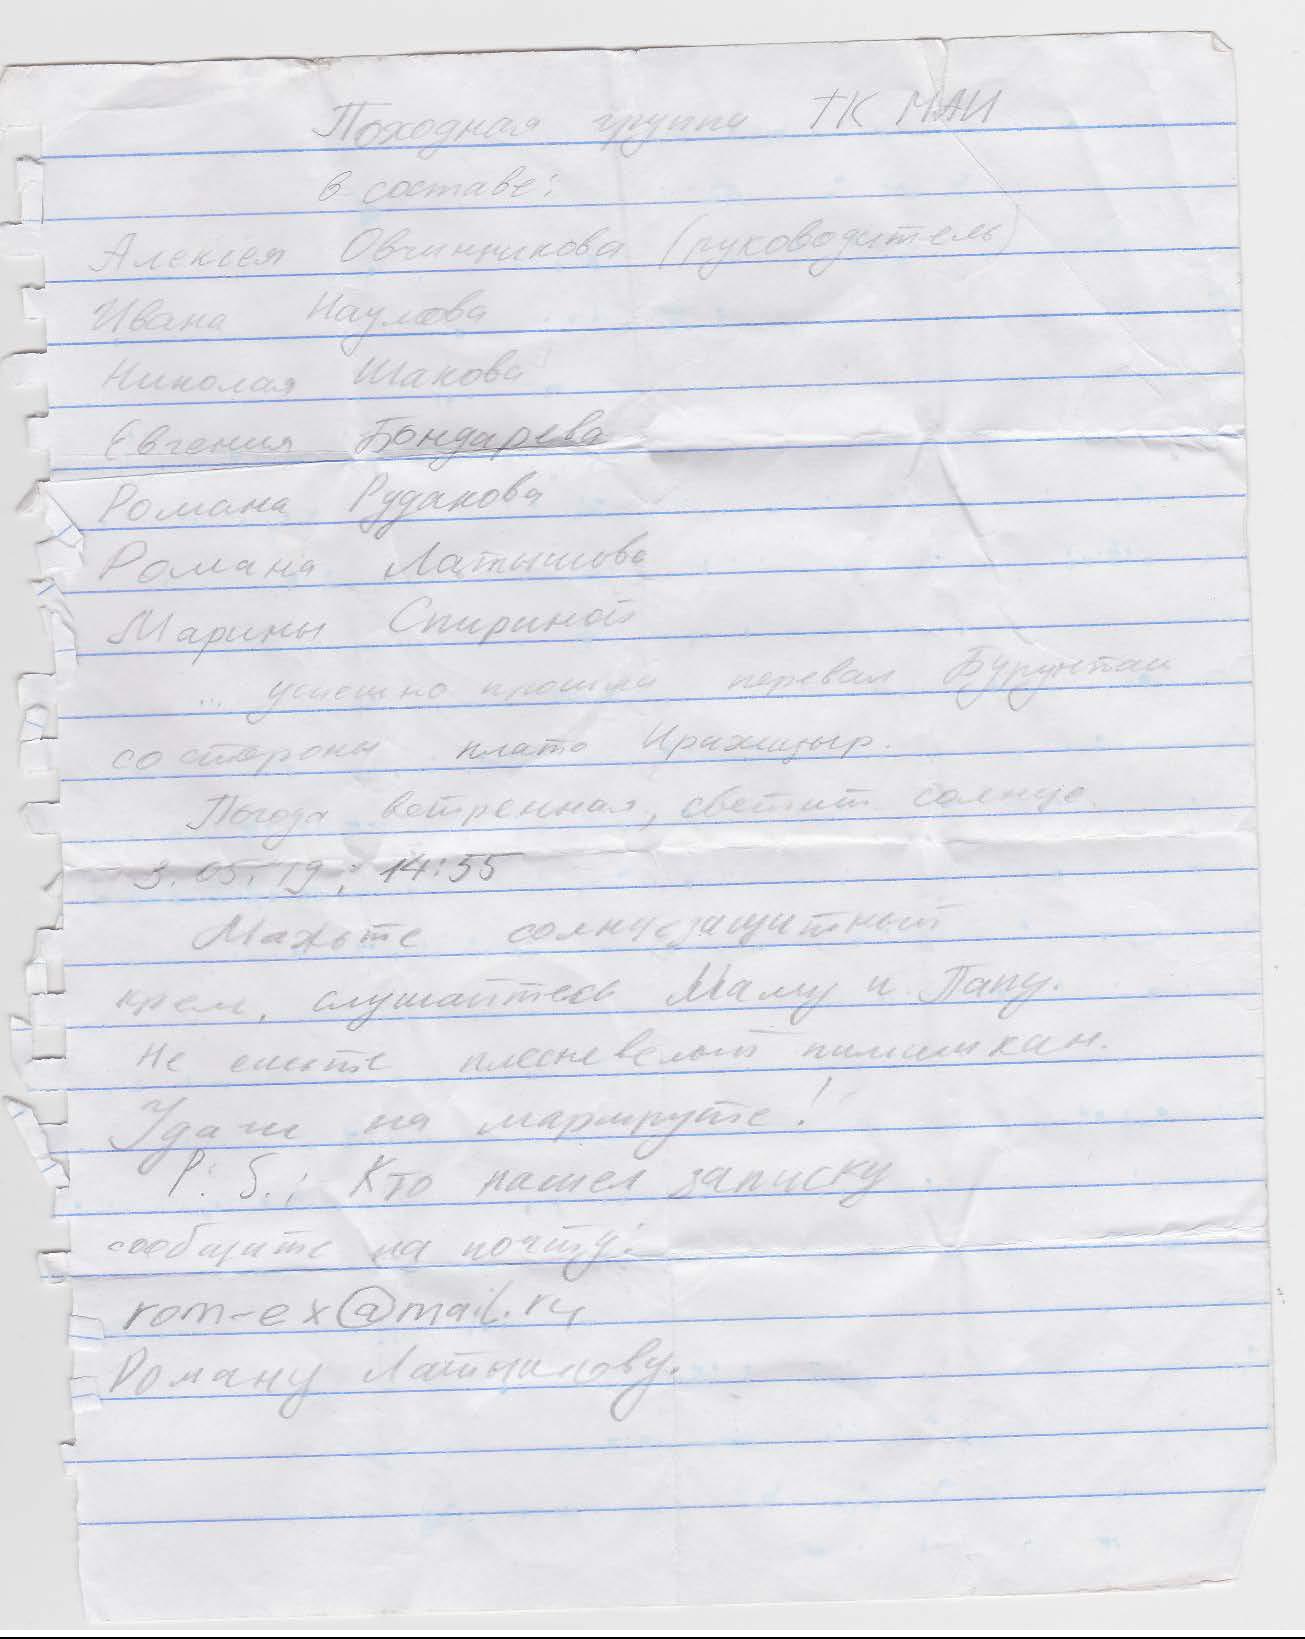 Походная группа ТК МАИ
в составе:
Алексея Овчинникова (руководитель)
Ивана Наумова
Николая Шакова
Евгения Бондарева
Романа Рудакова
Романа Латышова
Марины Спириной
... успешно прошли перевал Бурунташ
со стороны плато Ирахицыр.
Погода ветренная, светит солнце.
3.05.19; 14:55
Мажьте солнцезащитный
крем, слушайтесь Маму и Папу.
Не ешьте плесневелый пимикан.
Удачи на маршруте!
P. S.: Кто нашел записку
сообщите на почту:
rom-ex@mail.ru
Роману Латышову.